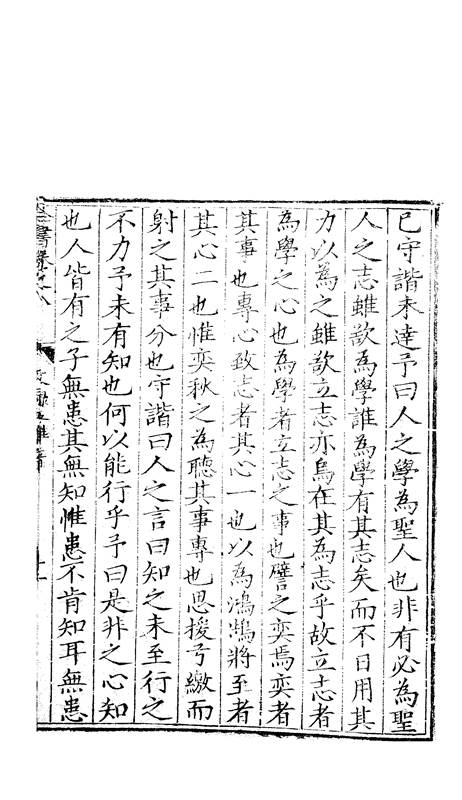 已守諧未達予曰人之學為聖人也非有必為聖
人之志雖欲為學誰為學有其志矣而不日用其
力以為之雖欲立志亦烏在其為志乎故立志者
為學之心也為學者立志之事也譬之奕焉奕者
其事也專心致志者其心一也以為鴻鵠將至者
其心二也惟奕秋之為聽其事專也思援弓繳而
射之其事分也守諧曰人之言曰知之未至行之
不力予未有知也何以能行乎予曰是非之心知
也人皆有之子無患其無知惟患不肯知耳無患
全書卷之八
文錄五雜著